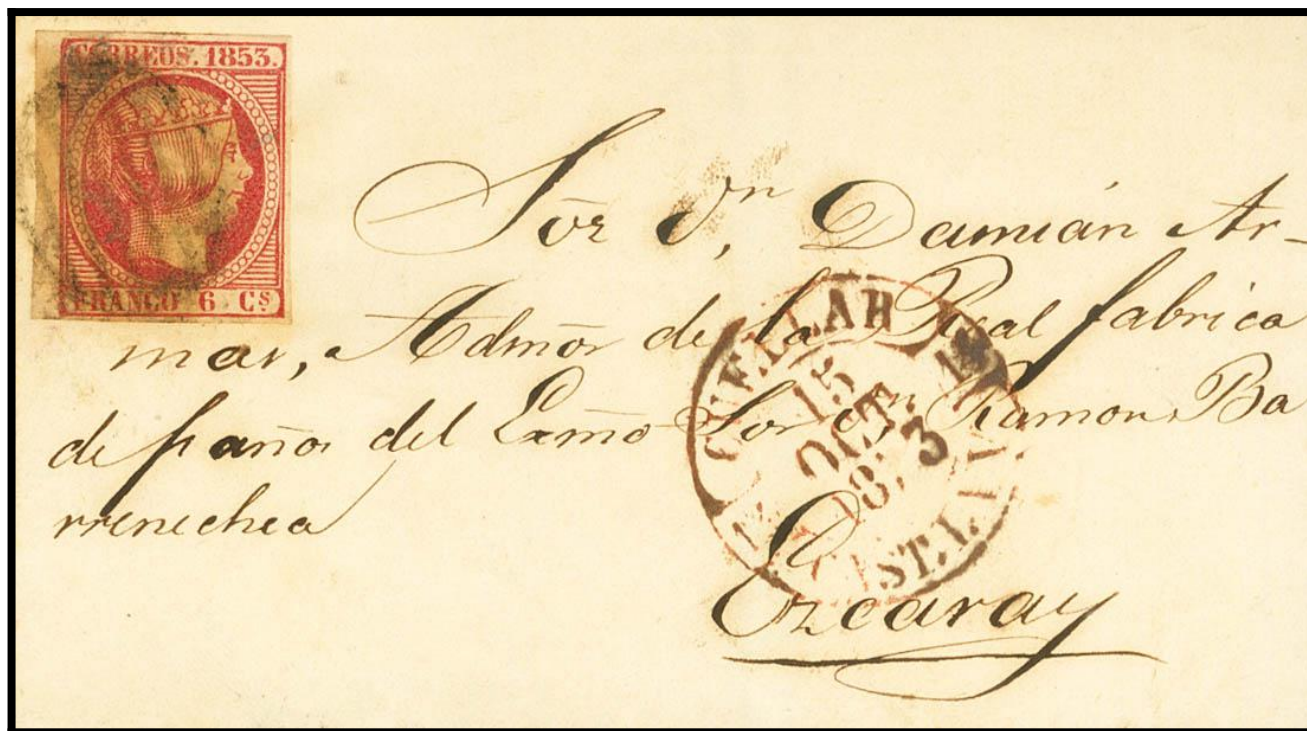 CORREOS. 1853.
FRANCO 6 Cs
Sor. dn. Damián Ar-
mar, Admor de la Real fabrica
de paños del Exmo Sor dn. Ramon Ba
rrenechea
Ezcaray
CUELLAR
15
OCT.
CAST. LA V.